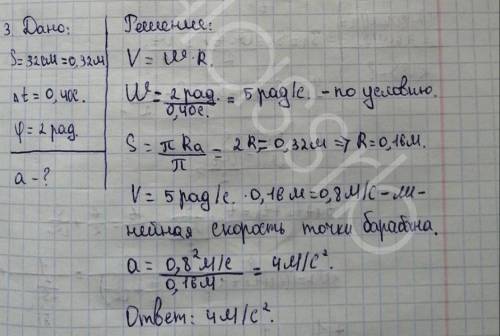 3. Дано:
S=32см=0,32м
Δt=0,40с.
φ=2 рад.
a-?
Решение:
V = W·R.
W = 2 рад / 0,40с. = 5 рад/с. - по условию.
S = πRa / π = 2R = 0,32м => R=0,16м.
V = 5 рад/с. · 0,16м = 0,8м/с - ли-
нейная скорость точки барабана.
a = 0,8² м/с / 0,16м. = 4м/с².
Ответ: 4м/с².